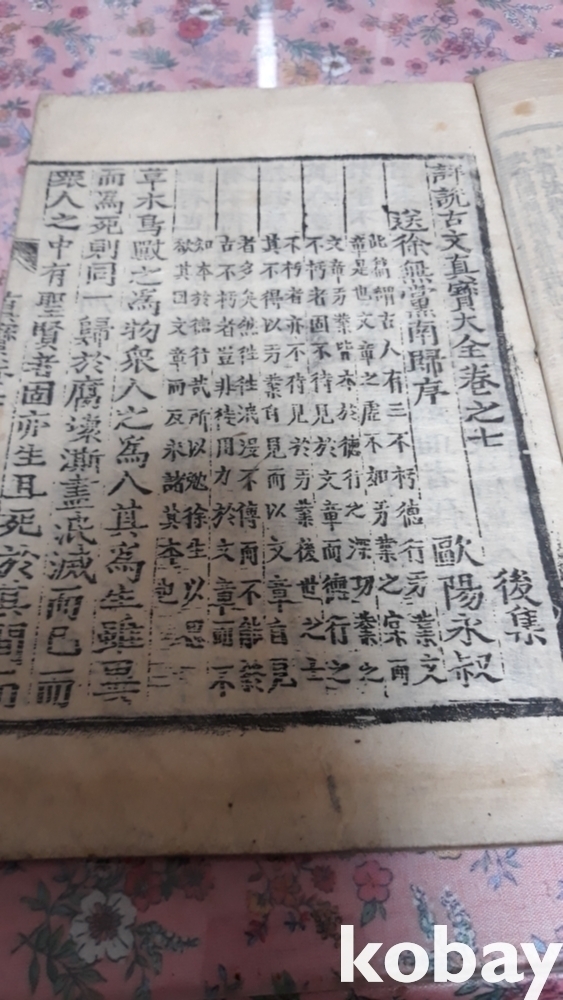 詳說古文真寶大全卷之七
後集
送徐無黨南歸序
歐陽永叔
此篇謂古人有三不朽德行功業文
章是也文章之虛不如功業之實而
文章功業皆本於德行之深功業之
不朽者固不待見於文章而德行之
不朽者亦不待見於功業後世之士
其不得以功業自見而以文章自見
者多矣然徃徃泯漫不傳而不能禁
古不朽者豈非徒用力於文章而不
知本於德行哉所以勉徐生以思
欲其因文章而反求諸其本也
草木鳥獸之為物衆人之為人其為生雖異
而為死則同一歸於腐壞澌盡泯滅而已而
衆人之中有聖賢者固亦生且死於其間而
kobay